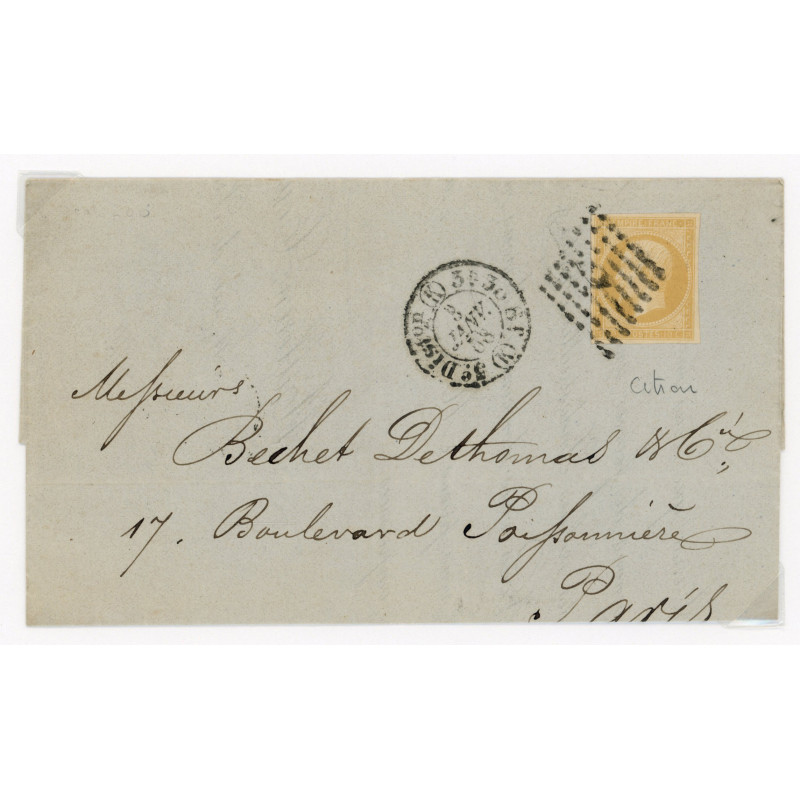 3e DISTon (K) 3e 30 Bt (K)
8
JANV.
Citron
Messieurs
Bechet Dethomas & Cie
17. Boulevard Poissonnière
Paris